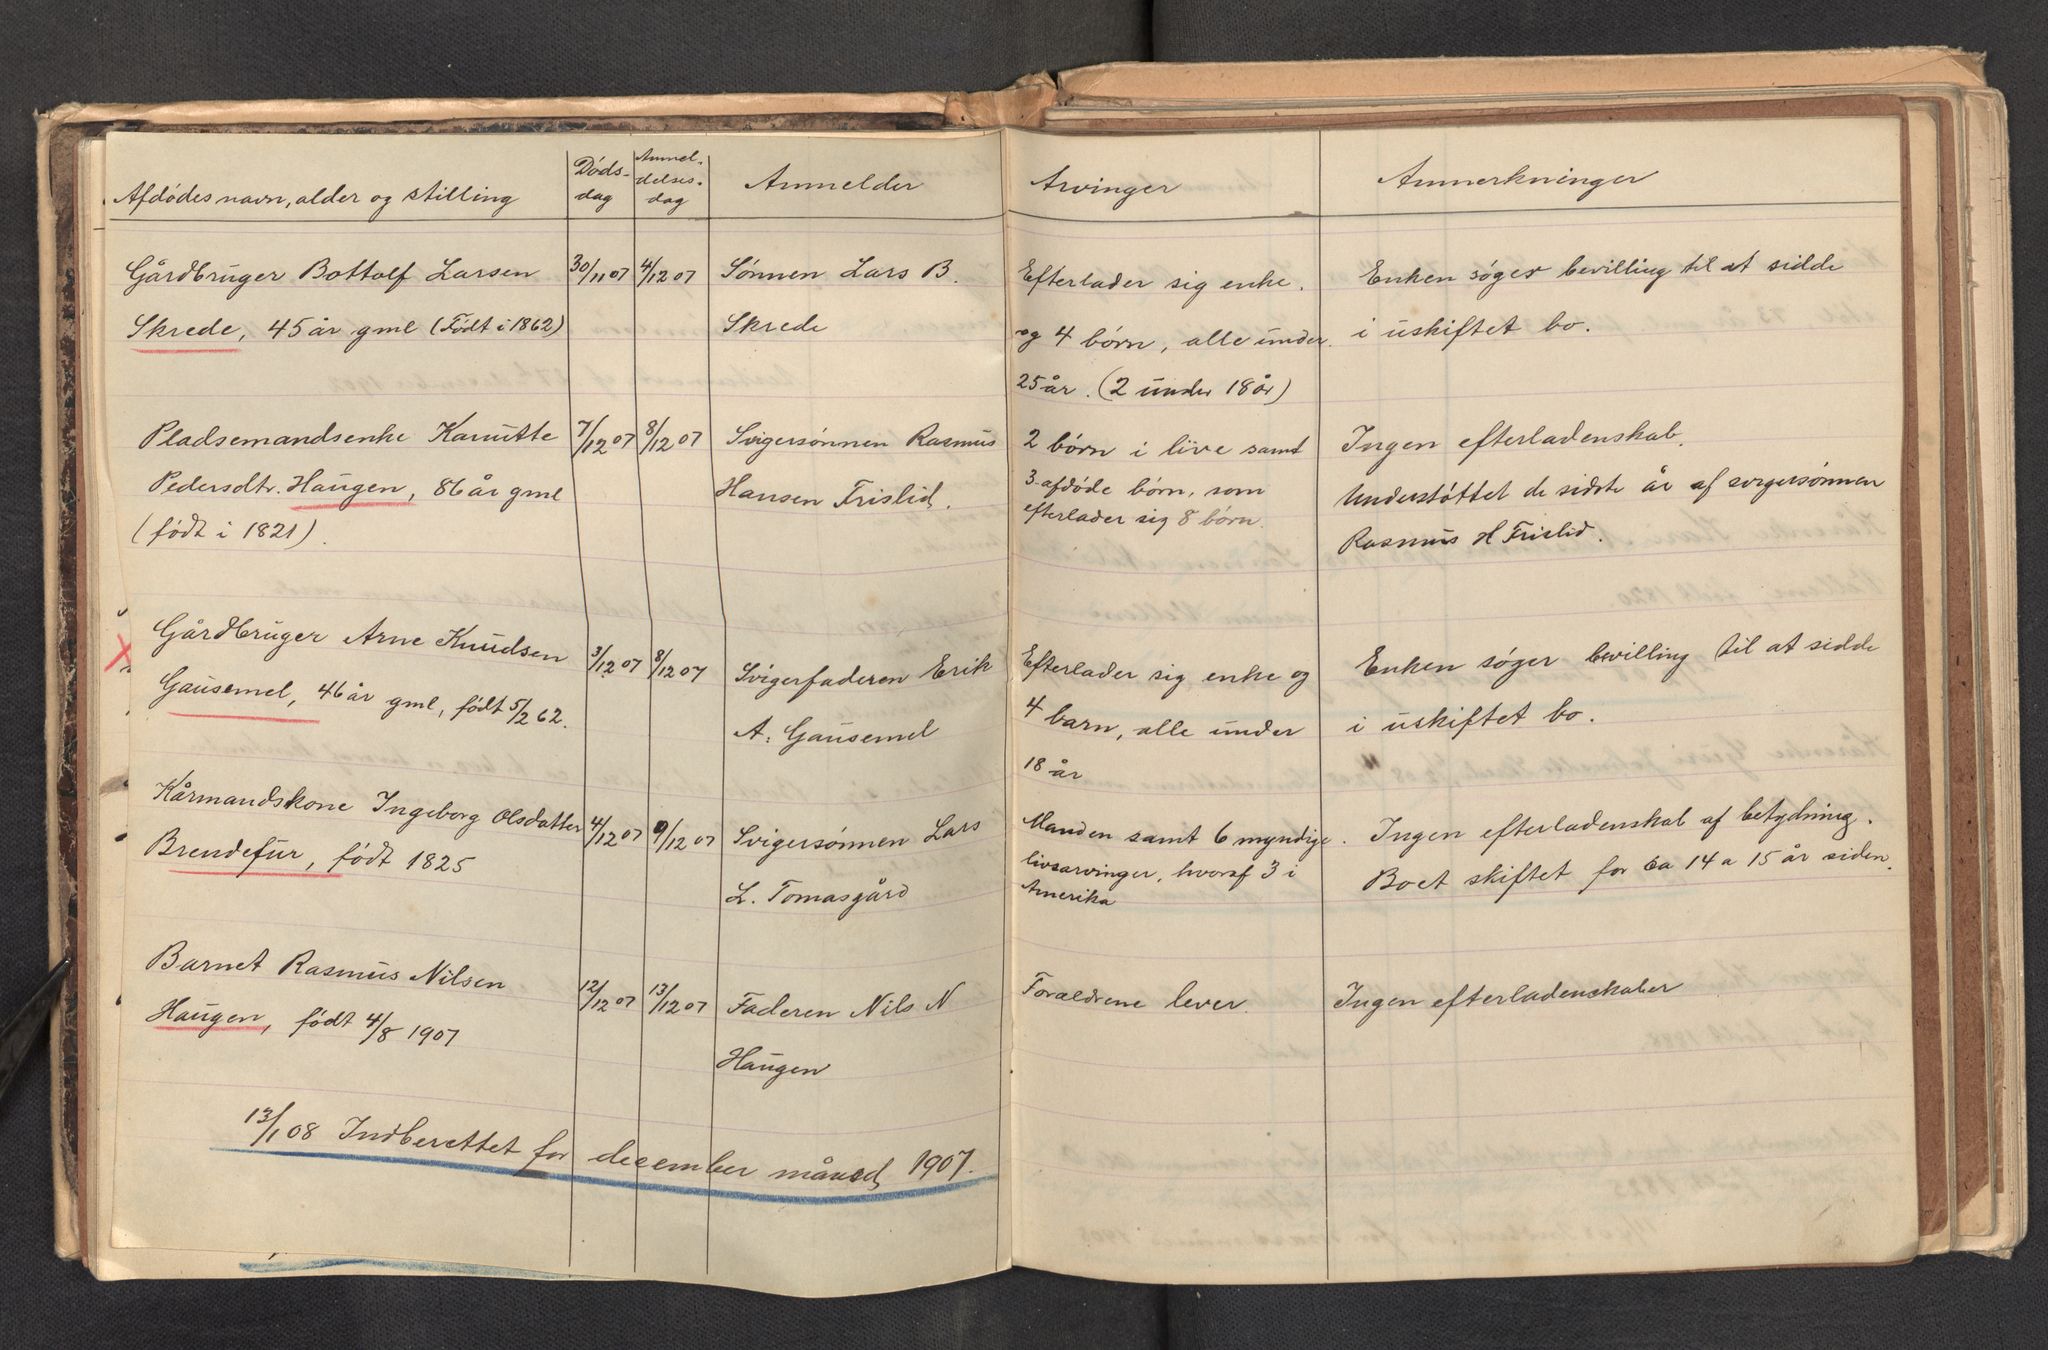 Afdødes navn, alder og stilling
Døds-
dag
Anmel-
delses-
dag
Anmelder
Arvinger
Anmerkninger
Gårdbruger Bottolf Larsen
Skrede, 45 år gml (Født i 1862)
30/11 07
4/12 07
Sønnen Lars B.
Skrede
Efterlader sig enke.
og 4 børn, alle under
25 år. (2 under 18 år)
Enken søger bevilling til at sidde
i uskiftet bo.
Pladsemandsenke Karutte
Pedersdtr. Haugen, 86 år gml
(født i 1821).
7/12 07
8/12 07
Svigersønnen Rasmus
Hansen Frislid.
2 børn i live samt
3 afdøde børn, som
efterlader sig 8 børn.
Ingen efterladenskab.
Understøttet de sidste år af svigersønnen
Rasmus H Frislid.
Gårdbruger Arne Knudsen
Gausemel, 46 år gml, født 5/2 62.
3/12 07
8/12 07
Svigerfaderen Erik
A. Gausemel
Efterlader sig enke og
4 barn, alle under
18 år
Enken søger bevilling til at sidde
i uskiftet bo.
Kårmandskone Ingeborg Olsdatter
Brendefur, født 1825
4/12 07
9/12 07
Svigersønnen Lars
L. Tomasgård
Manden samt 6 myndige
livsarvinger, hvoraf 3 i
Amerika
Ingen efterladenskab af betydning.
Boet skiftet for ca 14 a 15 år siden.
Barnet Rasmus Nilsen
Haugen, født 4/8 1907
12/12 07
13/12 07
Faderen Nils N
Haugen
Forældrene lever.
Ingen efterladenskaber
13/1 08 Indberettet for december måned 1907.